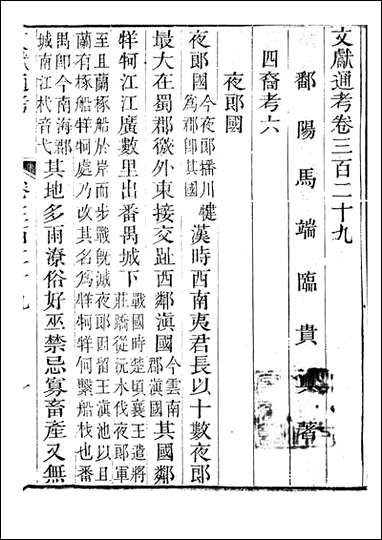 文獻通考卷三百二十九
鄱陽馬端臨貴著
四裔考六
夜郎國
夜郎國今夜郎播川犍為郡即其國漢時西南夷君長以十數夜郎
最大在蜀郡徼外東接交趾西鄰滇國今雲南郡滇國其國鄰
牂牁江江廣數里出番禺城下戰國時楚頃襄王遣將莊蹻從沅水伐夜郎軍
至且蘭椓船於岸而步戰既滅夜郎因留王滇池以且蘭有椓船牂牁處乃改其名為牂牁牂牁繫船杙也番
禺即今南海郡城南江杙音弋其地多雨潦俗好巫禁忌寡畜產又無